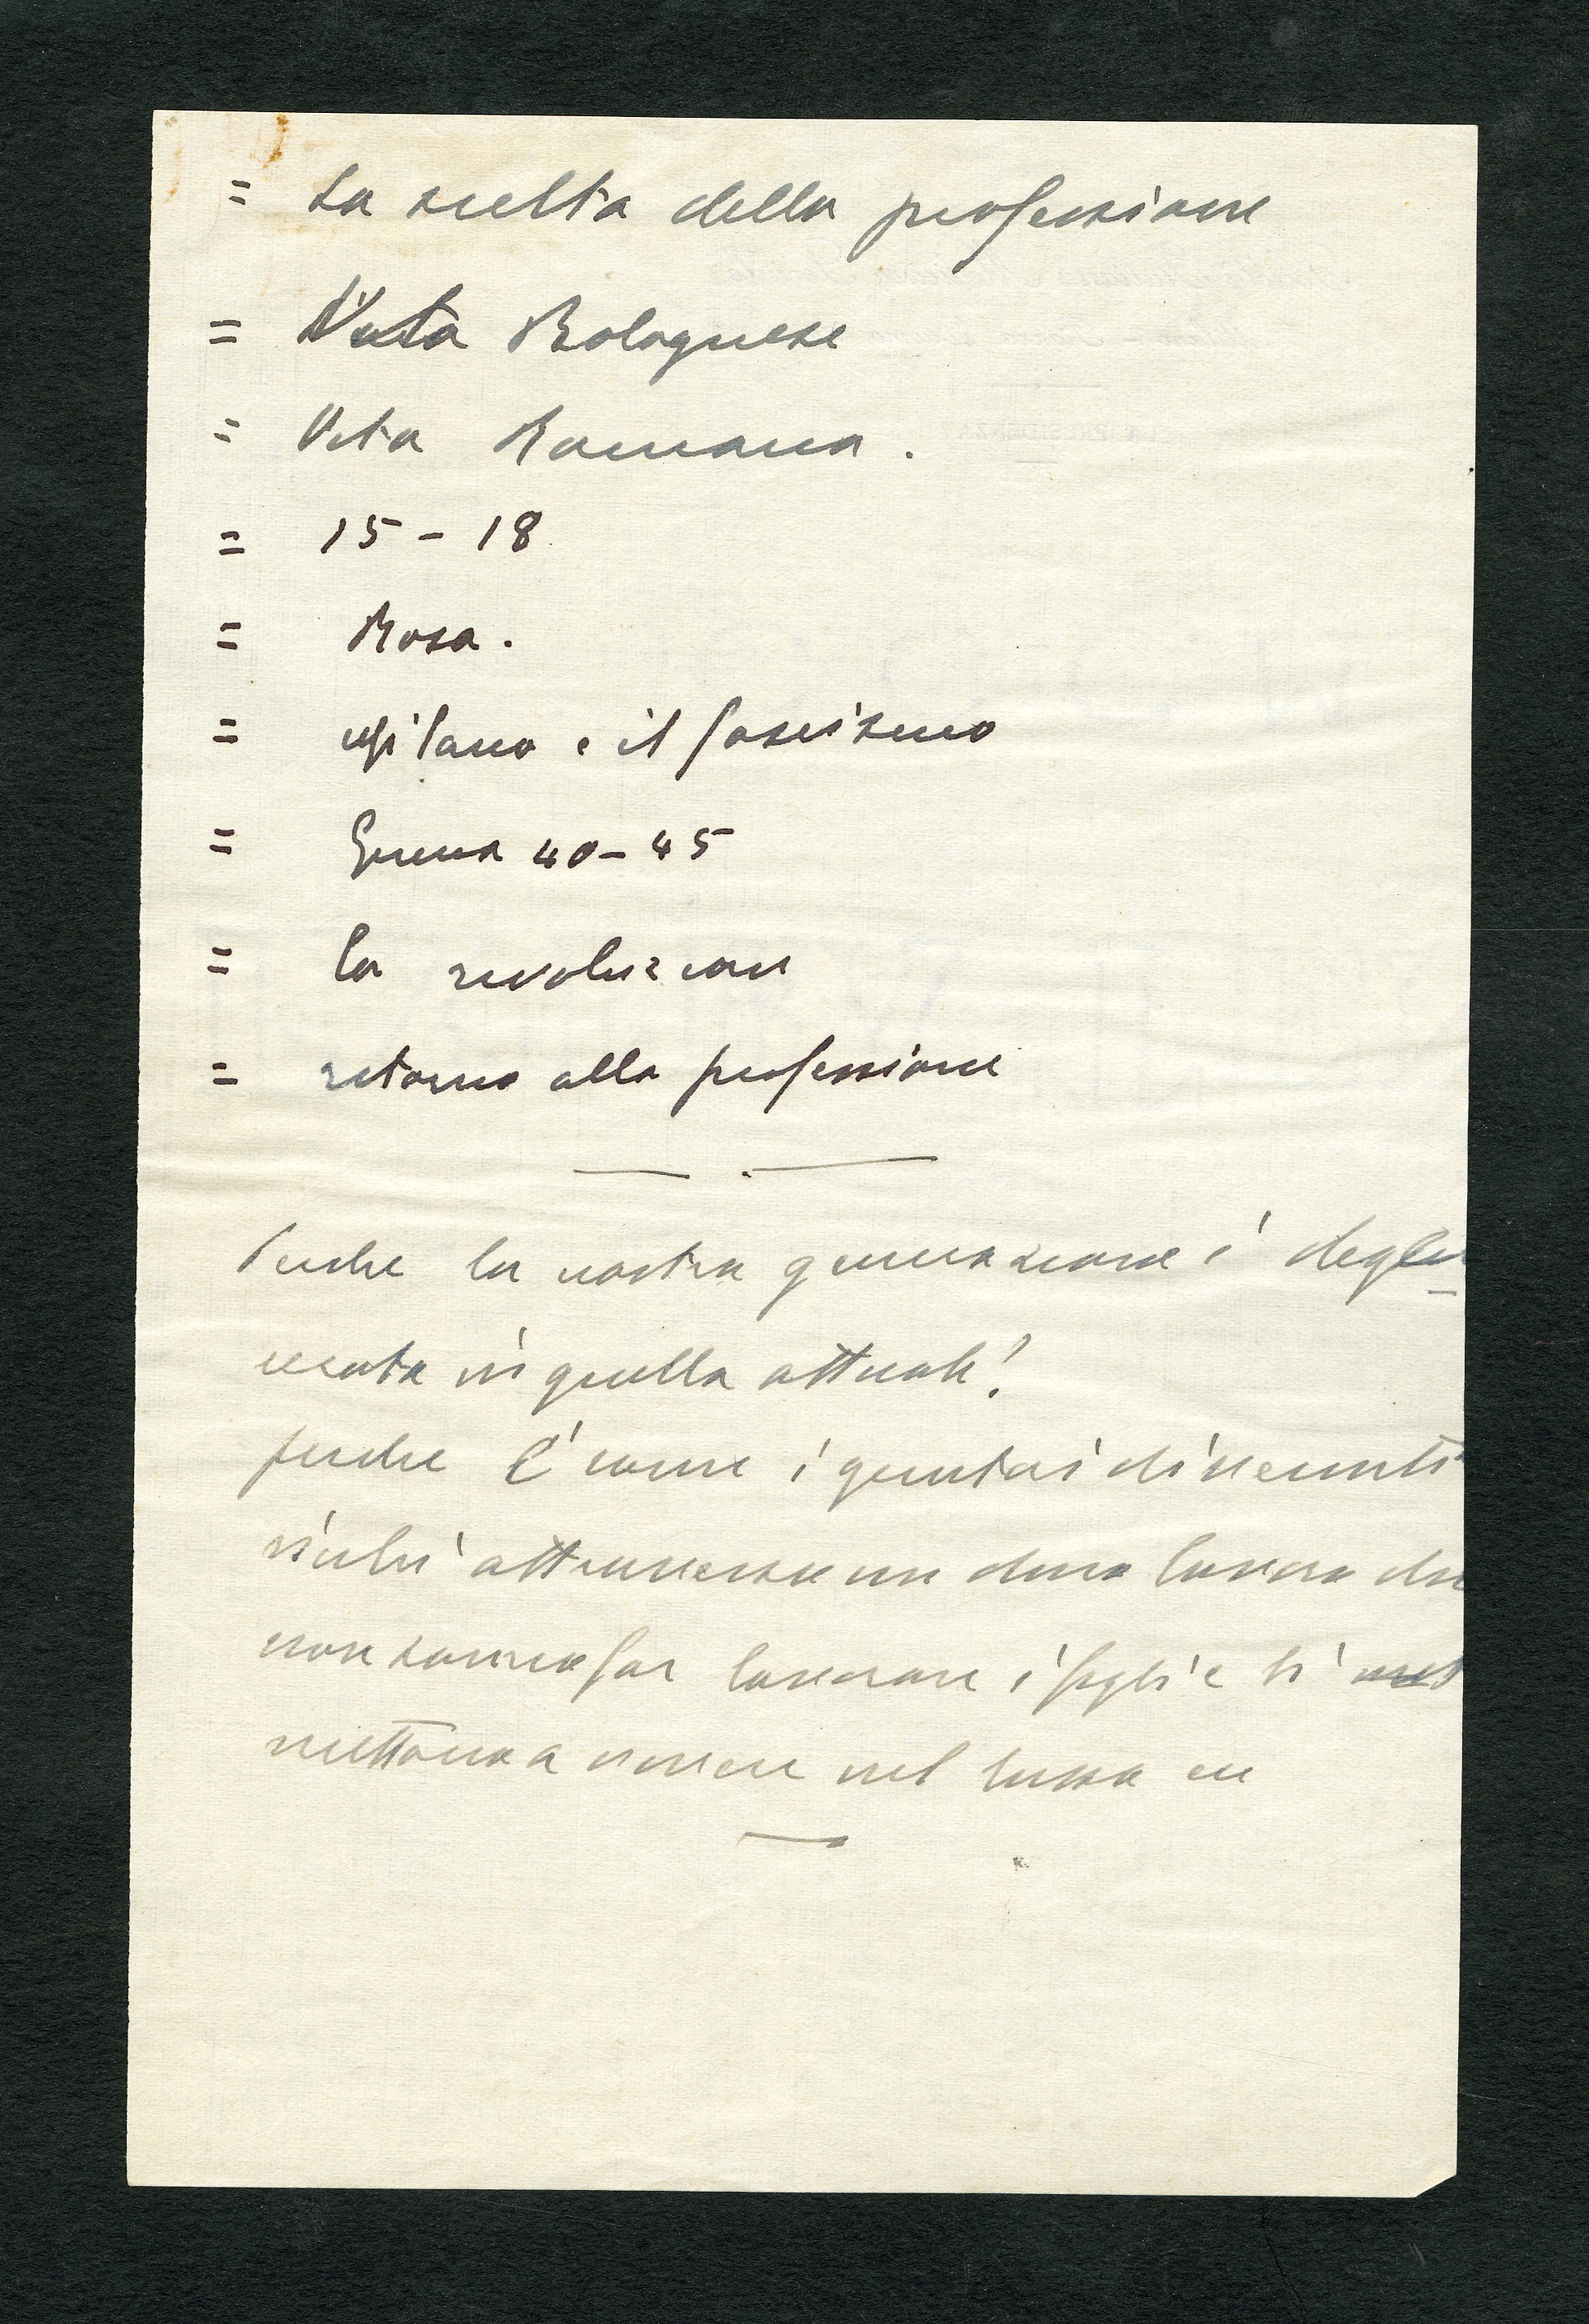 = La scelta della professione
= Vita Bolognese
= Vita Romana.
= 15-18
= Rosa.
= Milano e il fascismo
= Guerra 40-45
= la rivoluzione
= ritorno alla professione
Perche la nostra generazione è dege
nerata in quella attuale!
perche come i genitori divenuti
ricchi attraverso un duro lavoro che
non sanno far lavorare i figli e li
mettono a vivere nel lusso